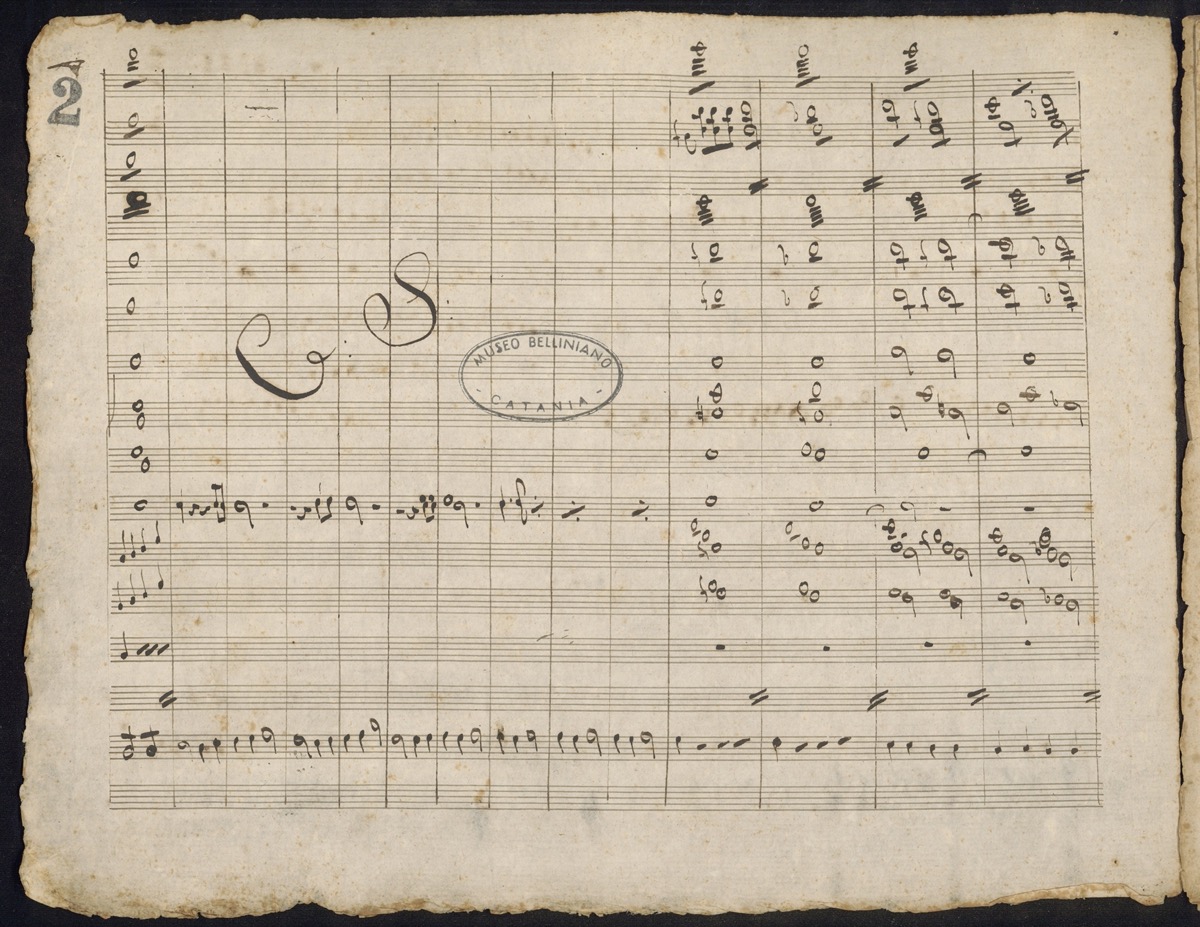 2
C S
MUSEO BELLINIANO
- CATANIA -